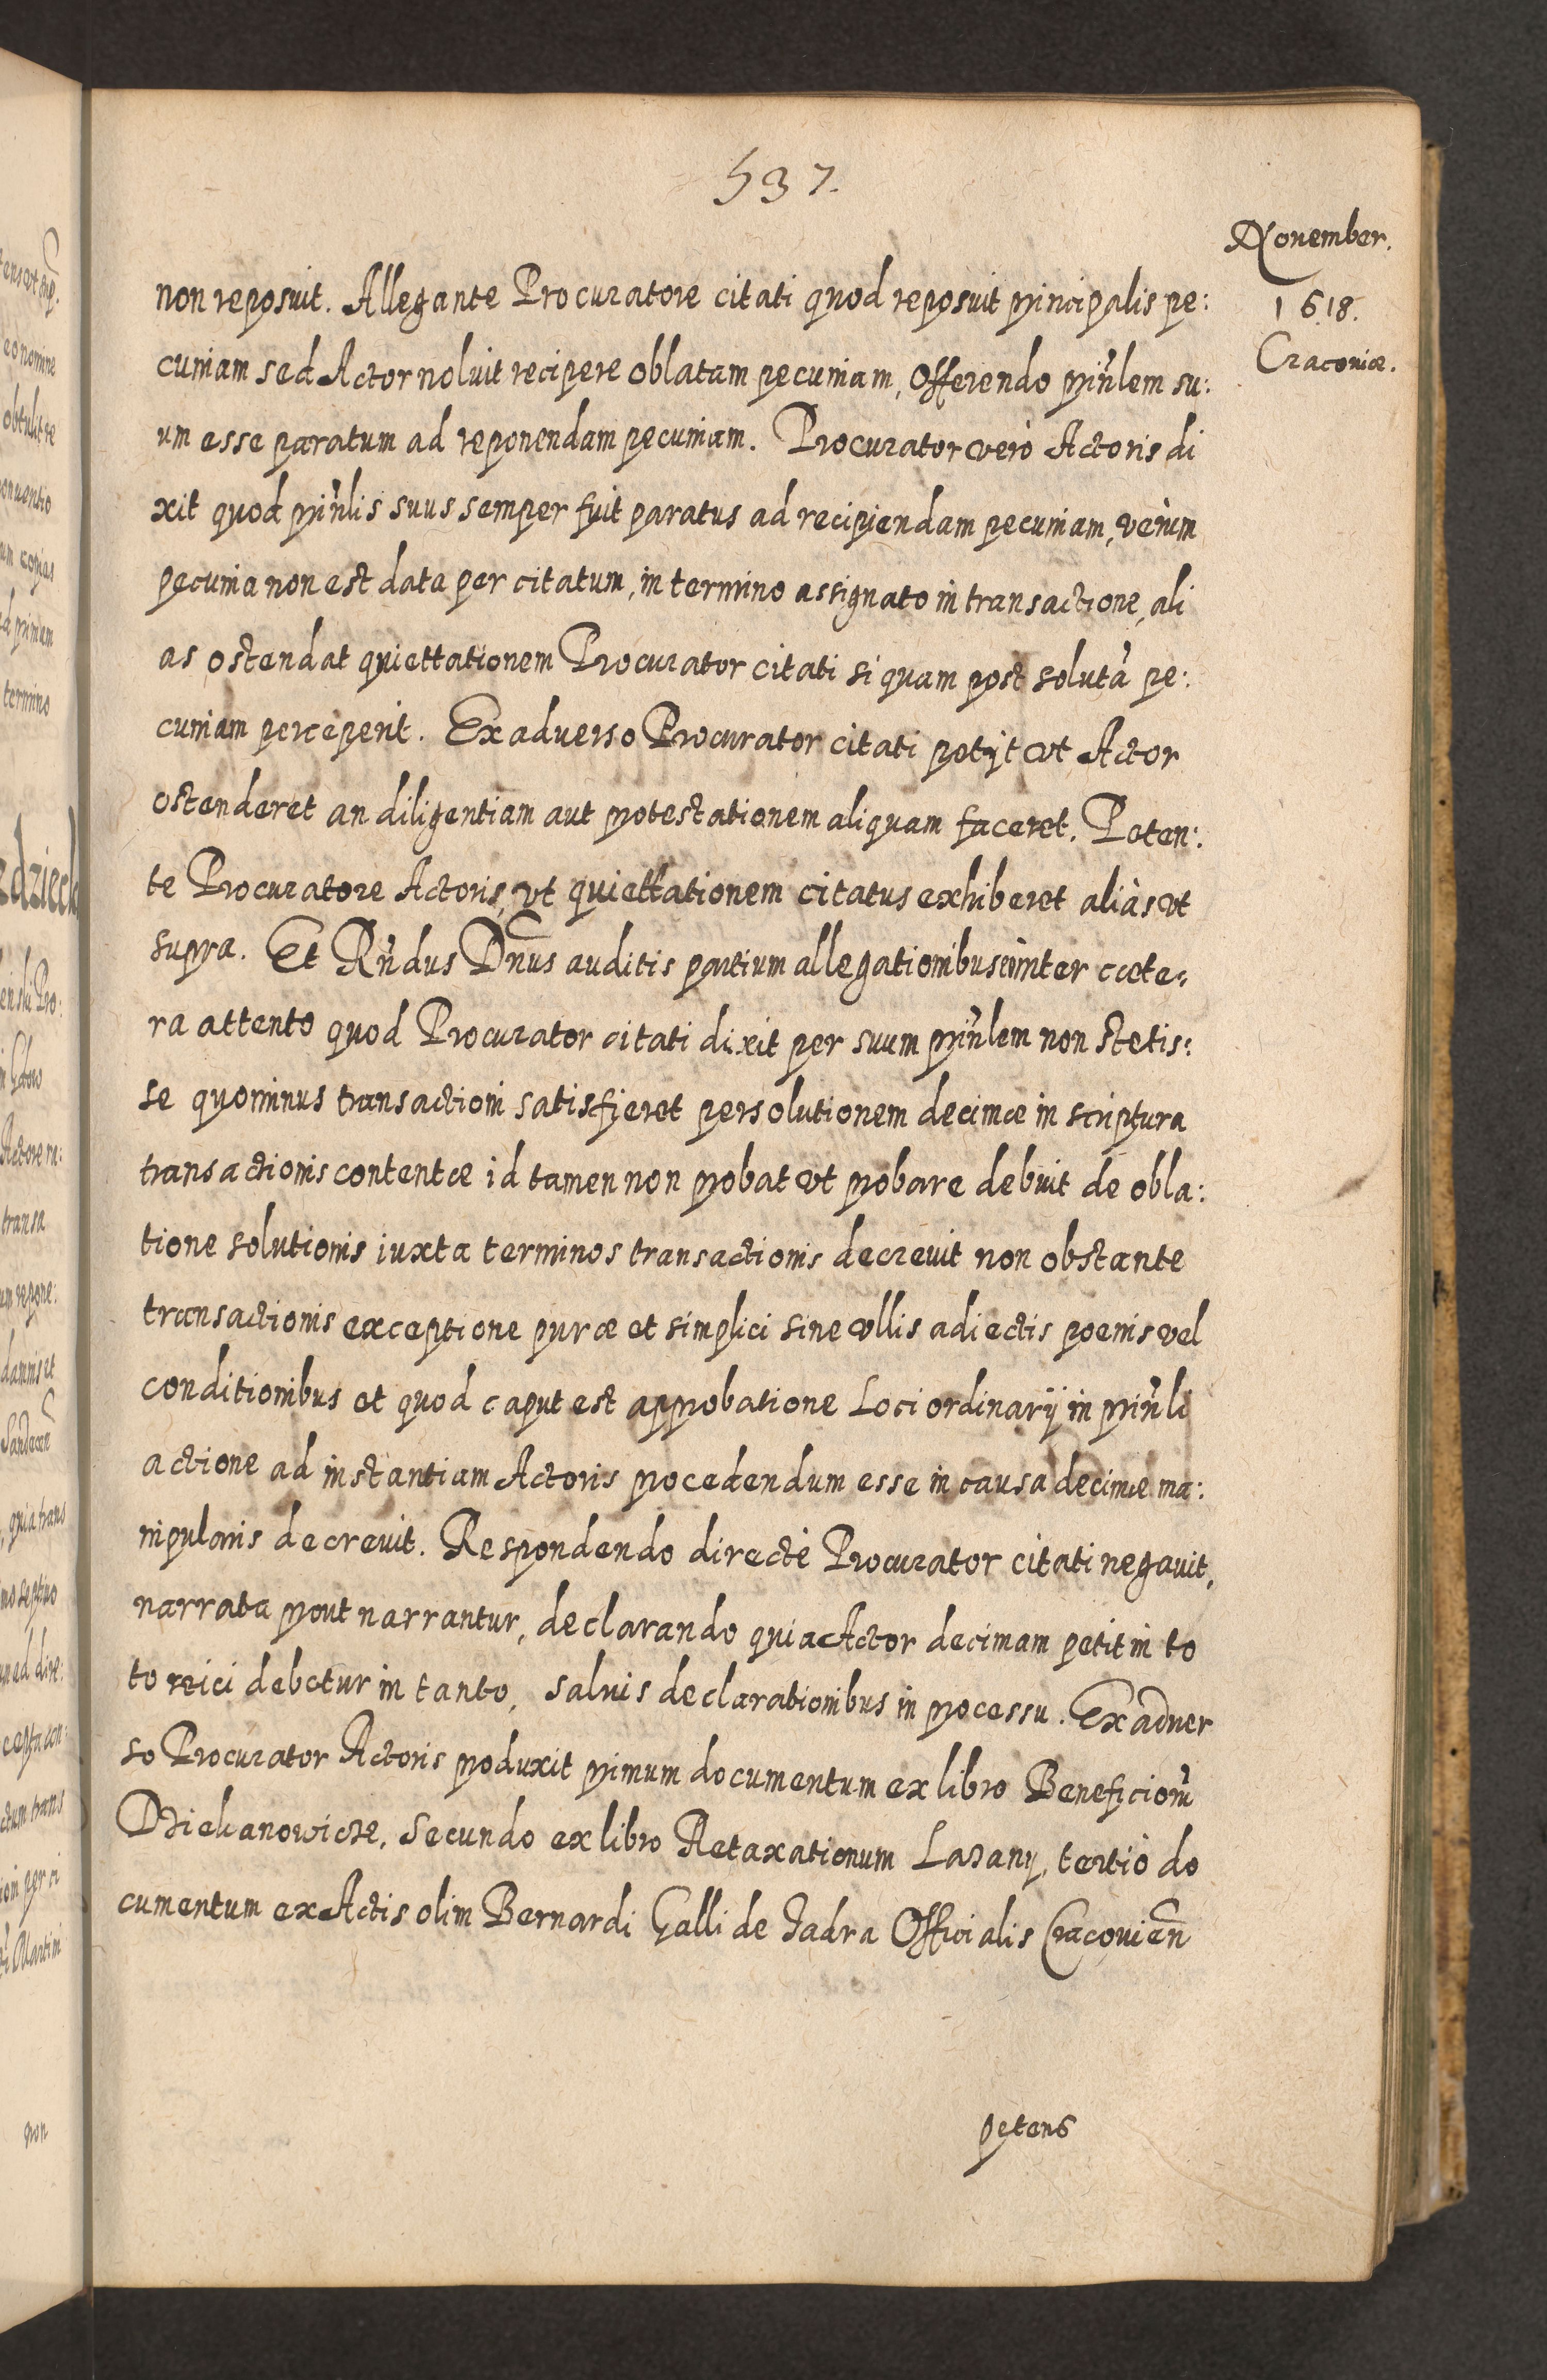 537.
Nouember.
1618.
Cracouiæ.
non reposuit. Allegante Procuratore citati quod reposuit principalis pe:
cuniam sed Actor noluit recipere oblatam pecuniam, Offerendo prin̄lem su:
um esse paratum ad reponendam pecuniam. Procurator verò Actoris di
xit quod prin̄lis suus semper fuit paratus ad recipiendam pecuniam, verùm
pecunia non est data per citatum, in termino assignato in transactione, ali
as ostendat quiettationem Procurator citati si quam post solutā pe:
cuniam perceperit. Ex aduerso Procurator citati petijt vt Actor
ostenderet an diligentiam aut protestationem aliquam faceret. Peten:
te Procuratore Actoris, vt quiettationem citatus exhiberet aliàs vt
supra. Et Rn̄dus Dn̄us auditis partium allegationibus inter cœte:
ra attento quod Procurator citati dixit per suum prin̄lem non stetis:
se quominus transactioni satisfieret per solutionem decimæ in scriptura
transactionis contentæ id tamen non probat vt probare debuit de obla:
tione solutionis iuxta terminos transactionis decreuit non obstante
transactionis exceptione puræ et simplici sine vllis adiectis poenis vel
conditionibus et quod caput est approbatione Loci ordinarij in prin̄li
actione ad instantiam Actoris procedendum esse in causa decimæ ma:
nipularis decreuit. Respondendo directè Procurator citati negauit,
narrata prout narrantur, declarando quia Actor decimam petit in to
to reici debetur in tanto, saluis declarationibus in processu. Ex aduer
so Procurator Actoris produxit primum documentum ex libro Beneficiorū
Dziekanowicze, Secundo ex libro Retaxationum Lasany, tertiò do
cumentum ex Actis olim Bernardi Galli de Jadra Officialis Cracouien̄
petens